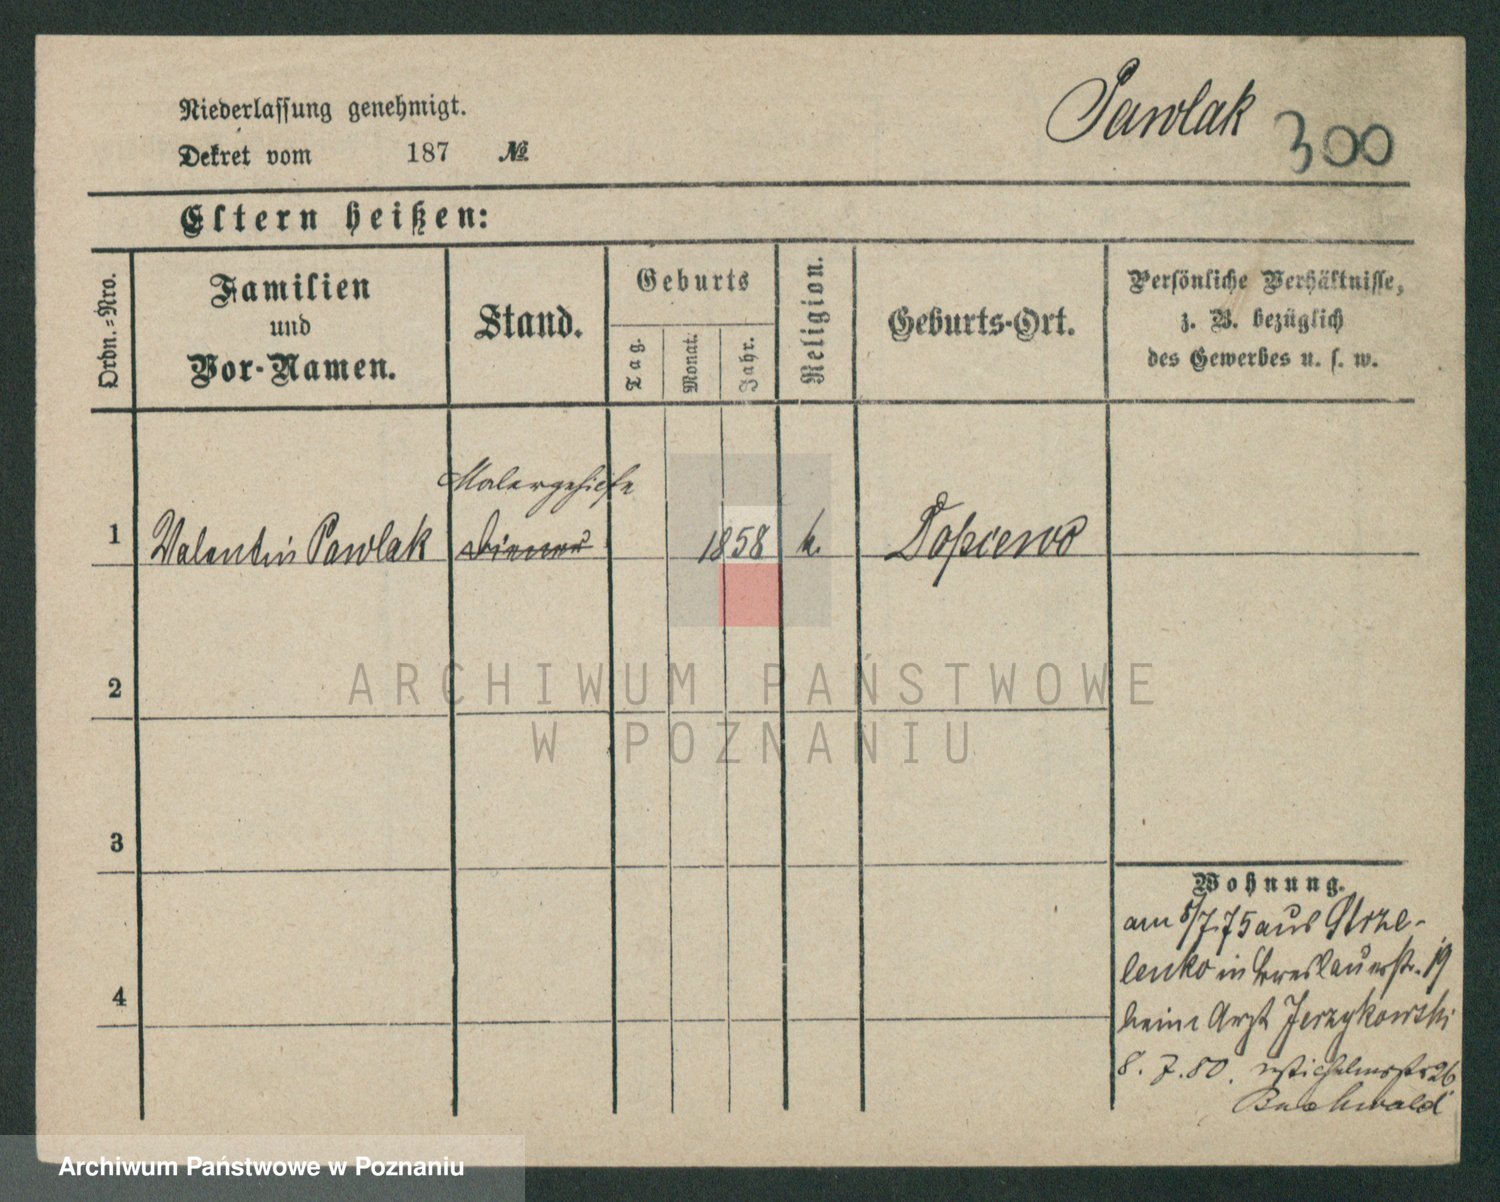 Niederlassung genehmigt.
Pawlak 300
Dekret vom 187 №
Eltern heißen:
Ordn.=Nro.
Familien
und
Vor-Namen.
Stand.
Geburts
Tag.
Monat.
Jahr.
Religion.
Geburts-Ort.
Persönliche Verhältnisse,
z. B. bezüglich
des Gewerbes u. s. w.
Malergehilfe
1 Valentin Pawlak Diener 1858 k. Dopiewo
2
3
4
Wohnung.
am 5/7.75 aus Strze-
lenko in Breslauerstr. 19
beim Arzt Jerzykowski
8. 7. 80. 26
Buchwald
ARCHIWUM PAŃSTWOWE
W POZNANIU
Archiwum Państwowe w Poznaniu